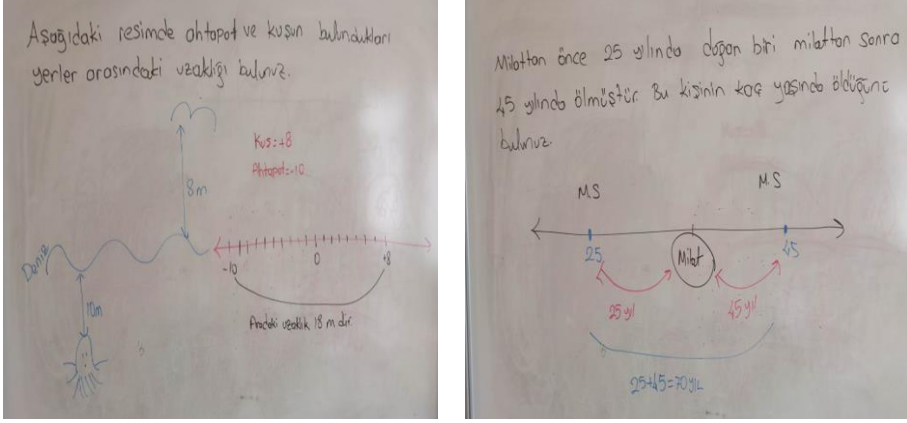 Aşağıdaki resimde ahtapot ve kuşun bulundukları
yerler arasındaki uzaklığı bulunuz.
Kuş=+8
Ahtapot=-10
8m
Deniz
-10
0
+8
10m
Aradaki uzaklık 18 m dir.
Milattan önce 25 yılında doğan biri milattan sonra
45 yılında ölmüştür. Bu kişinin kaç yaşında öldüğünü
bulunuz.
M.S
M.S
25
Milat
45
25 yıl
45 yıl
25+45=70 YIL